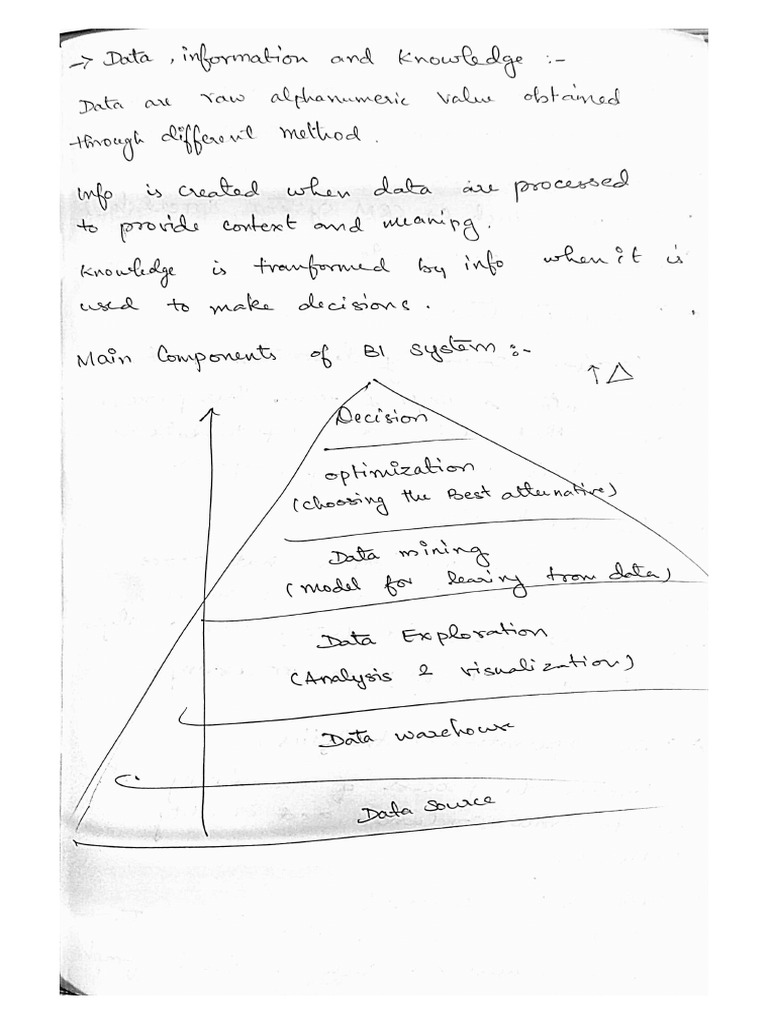 → Data, information and Knowledge :-
Data are raw alphanumeric value obtained
through different method.
Info is created when data are processed
to provide context and meaning.
Knowledge is tranformed by info when it is
used to make decisions.
Main Components of BI system :-
↑ △
Decision
optimization
(choosing the Best alternative)
Data mining
(model for learing from data)
Data Exploration
(Analysis & visualization)
Data warehouse
Data source